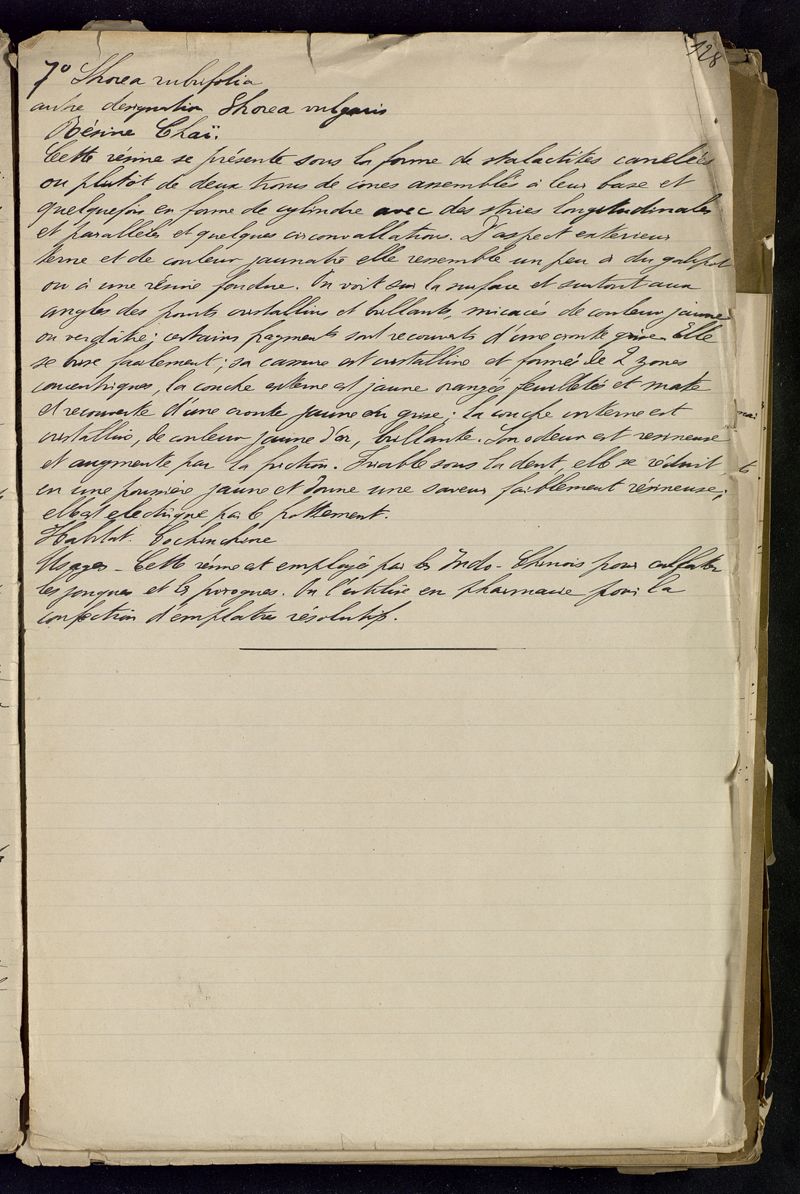 128
7º Shorea rubrifolia
autre désignation Shorea vulgaris
Résine Chaï.
Cette résine se présente sous la forme de stalactites canelées
ou plutôt de deux troncs de cônes assemblés à leur base et
quelquefois en forme de cylindre avec des stries longitudinales
et parallèles et quelques circonvallations. D'aspect exterieur
terne et de couleur jaunatre elle ressemble un peu à du galipot
ou à une résine fondue. On voit sur la surface et surtout aux
angles des points cristallins et brillants, micacés de couleur jaune
ou verdâtre; certains fragments sont recouverts d'une croute grise. Elle
se brise facilement; sa cassure est cristalline et formée de 2 zones
concentriques, la couche externe est jaune orangée feuilletée et mate
et recouverte d'une croute jaune ou grise; la couche interne est
cristalline, de couleur jaune d'or, brillante. Son odeur est resineuse
et augmente par la friction. Friable sous la dent, elle se réduit
en une poussière jaune et donne une saveur faiblement résineuse;
elle est electrique par le frottement.
Habitat. Cochinchine
Usages - Cette résine est employée par les Indo-Chinois pour calfater
les jonques et les pirogues. On l'utilise en pharmacie pour la
confection d'emplatres résolutifs.